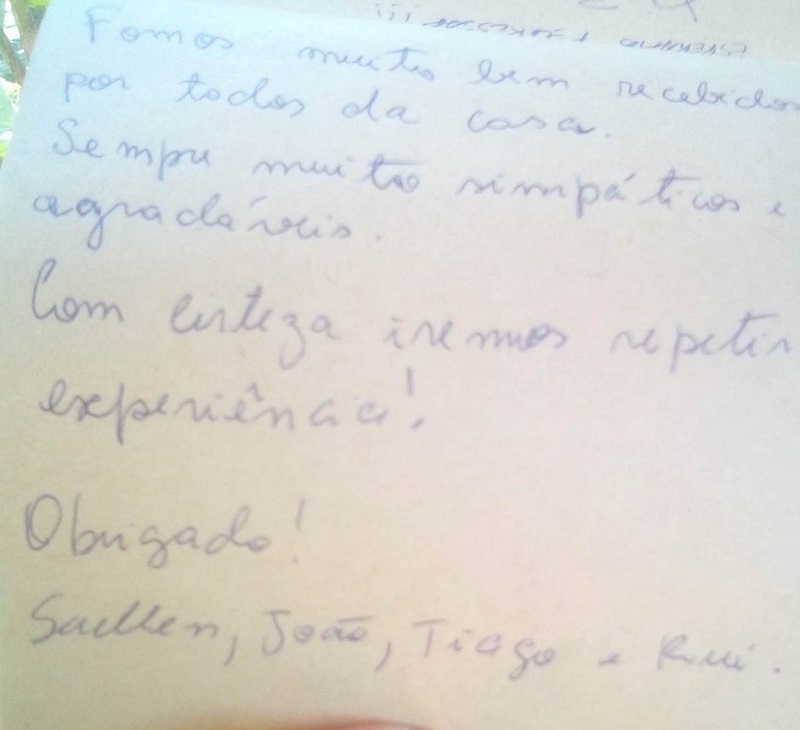 Fomos muito bem recebidos
por todos da casa.
Sempre muito simpáticos e
agradáveis.
Com certeza iremos repetir
experiência!
Obrigado!
Suellen, João, Tiago e Rui.